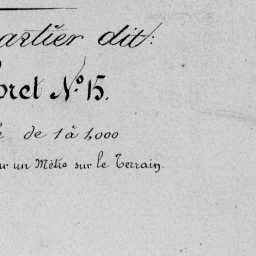 artier dit:
oret N.º 15.
de 1 à 1,000
ur un Mètre sur le Terrain.